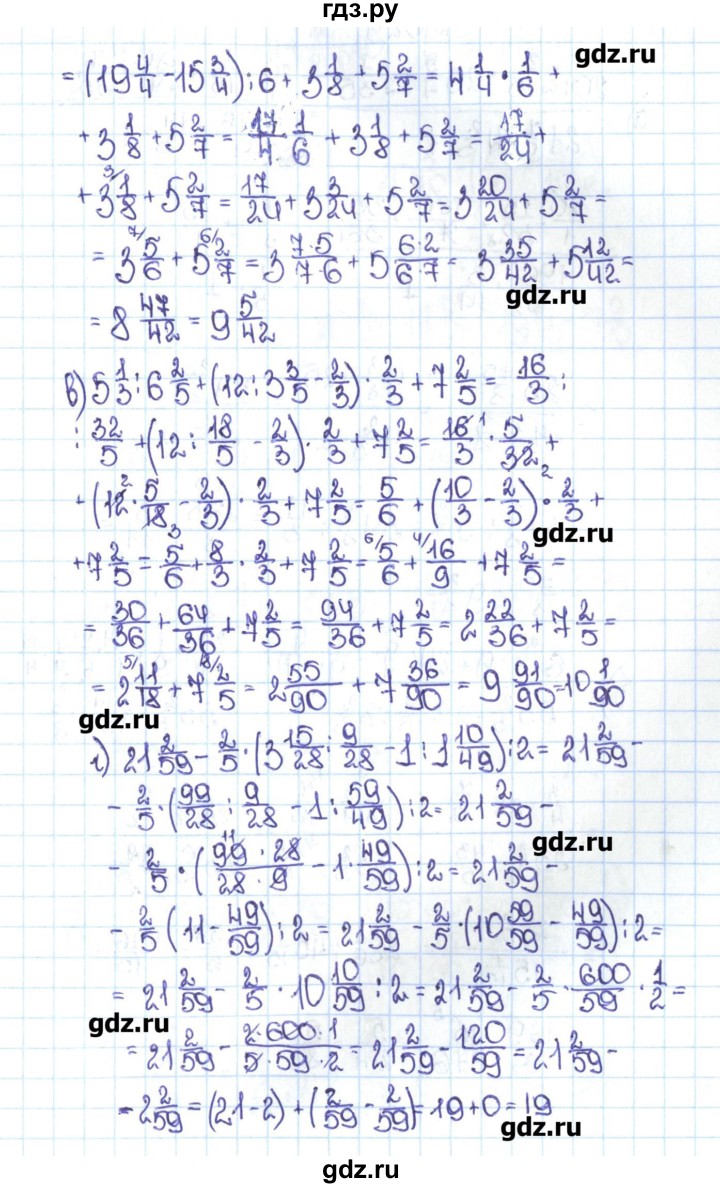 гдз.ру
gdz.ru
= (19 4/4 - 15 3/4) : 6 + 3 1/8 + 5 2/7 = 4 1/4 · 1/6 +
+ 3 1/8 + 5 2/7 = 17/4 · 1/6 + 3 1/8 + 5 2/7 = 17/24 +
+ 3 ³⁄1/8 + 5 2/7 = 17/24 + 3 3/24 + 5 2/7 = 3 20/24 + 5 2/7 =
= 3 ⁷⁄5/6 + 5 ⁶⁄2/7 = 3 7·5/7·6 + 5 6·2/6·7 = 3 35/42 + 5 12/42 =
gdz.ru
= 8 47/42 = 9 5/42
в) 5 1/3 : 6 2/5 + (12 : 3 3/5 - 2/3) · 2/3 + 7 2/5 = 16/3 :
: 32/5 + (12 : 18/5 - 2/3) · 2/3 + 7 2/5 = 16¹/3 · 5/32₂ +
+ (12² · 5/18₃ - 2/3) · 2/3 + 7 2/5 = 5/6 + (10/3 - 2/3) · 2/3 +
gdz.ru
+ 7 2/5 = 5/6 + 8/3 · 2/3 + 7 2/5 = ⁶⁄5/6 + ⁴⁄16/9 + 7 2/5 =
= 30/36 + 64/36 + 7 2/5 = 94/36 + 7 2/5 = 2 22/36 + 7 2/5 =
= 2 ⁵⁄11/18 + 7 ¹⁸⁄2/5 = 2 55/90 + 7 36/90 = 9 91/90 = 10 1/90
gdz.ru
г) 21 2/59 - 2/5 · (3 15/28 : 9/28 - 1 : 1 10/49) : 2 = 21 2/59 -
- 2/5 · (99/28 : 9/28 - 1 : 59/49) : 2 = 21 2/59 -
gdz.ru
- 2/5 · (99¹¹ · 28/28 · 9 - 1 · 49/59) : 2 = 21 2/59 -
- 2/5 (11 - 49/59) : 2 = 21 2/59 - 2/5 · (10 59/59 - 49/59) : 2 =
= 21 2/59 - 2/5 · 10 10/59 : 2 = 21 2/59 - 2/5 · 600/59 · 1/2 =
gdz.ru
= 21 2/59 - 2·600·1/5·59·2 = 21 2/59 - 120/59 = 21 2/59 -
- 2 2/59 = (21 - 2) + (2/59 - 2/59) = 19 + 0 = 19
gdz.ru
gdz.ru